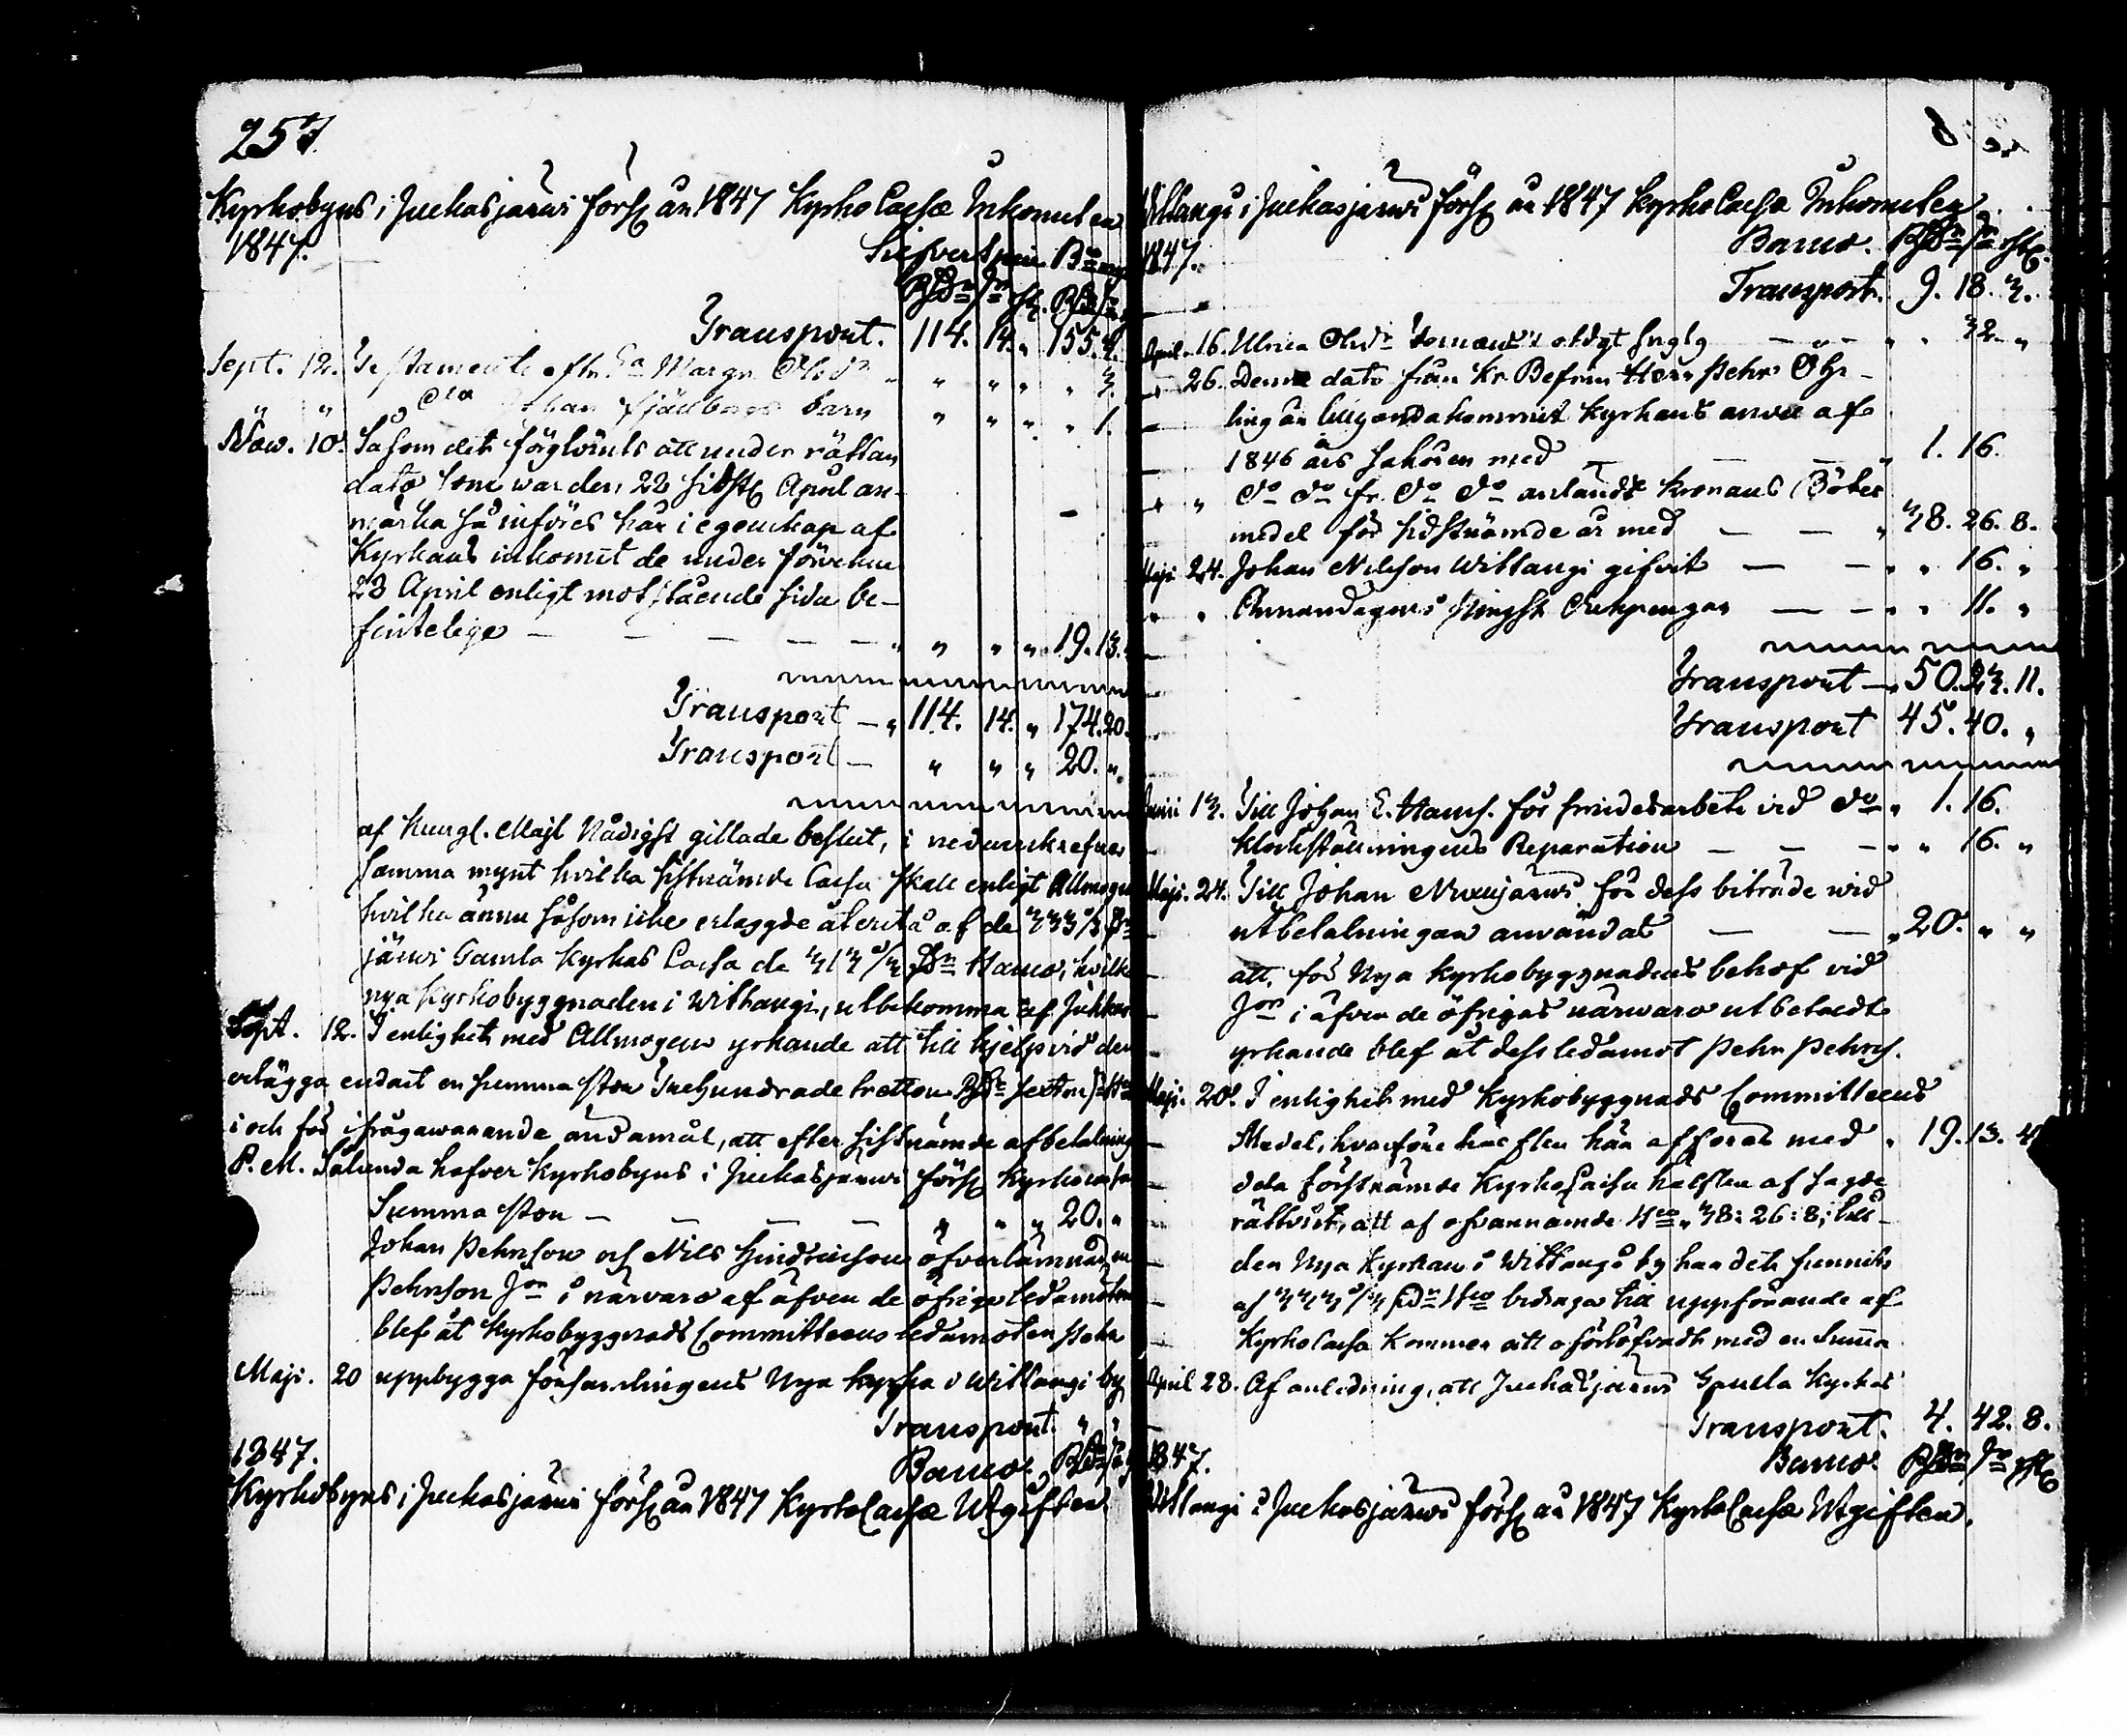 257.
Kyrkobyns i Juckasjärwi förs: år 1847 Kyrko Cassæ Inkomsten
1847. Silfver Specie Bco
RDr s rst. RDr s
Transport. 114. 14. „ 155. 7.
Sept. 12. Testamente eftr Margr. Olsdr „ „ „ „ 3.
„ „ Dito Johan Fjällborgs barn „ „ „ „ 1.
Nov. 10. Såsom det förglömts att under rättan
dato som war den 23 sidstl April an-
märka så införes här i egenskap af
Kyrkans inkomst de under förutnu
23 April enligt motstående sida be-
fintelige — — — — „ „ „ „ 19. 13.
Transport — „ 114. 14. „ 174. 20.
Transport — „ „ „ 20. „
af Kungl. Majt Nådigst gillade beslut, i nedanskrefne
samma mynt hvilka sistnämde Cassa skall enligt Allmogen
hvilka ännu såsom icke erlaggde återstå af de 333 1/3 RDr
järwi Gamla Kyrkas Cassa de 313 1/3 RDr Banco, hvilka
nya Kyrkobyggnaden i Wittangi, utbekomma af Juckas
Sept. 12. I enlighet med Allmogens yrkande att till hjelp vid den
erlägga endast en summa stor Trehundrade tretton RDr sexton s
i och för ifrågawarande ändamål, att efter sistnämde afbetalning
P.M. Sålunda hafver Kyrkobyns i Juckasjärwi förs: Kyrkocassa
Summa stor — — — — „ „ „ 20. „
Johan Pehrsson och Nils Hindricsson öfverlämnad en
Pehrsson Jor i närvaro af äfven de öfrige ledamöter
blef åt Kyrkobyggnads Committeens ledamoten Pehr
Maji. 20 uppbygga församlingens Nya Kyrka i Wittangi by
Transport. „ „
1847. Banco. RDr s
Kyrkobyns i Juckasjärwi förs: år 1847 Kyrko Cassæ Utgifter
Wittangi i Juckasjärwi förs: år 1847 Kyrko Cassæ Inkomsten.
1847. Banco. RDr s rst.
Transport. 9. 18. 3.
April. 16. Ulrica Olsdr — „ — „ „ 32. „
„ 26. Denna dato från Kr. Befnm Herr Pehr Öhr-
ling
1846 års med — — — „ 1. 16.
„ „ do do fr. do do anlände Kronans Böter
medel för sidstnämde år med — — „ 38. 26. 8.
Maji 24. Johan Nilsson Wittangi gifvit — — „ „ 16. „
„ „ Annandagens Pingst Offerpengar — — „ „ 11. „
Transport — „ 50. 23. 11.
Transport 45. 40. „
Junii 13. Till Johan E. Hans. för smidesarbete vid do „ 1. 16.
klockställningens Reparation — — — „ „ 16. „
Maji. 24. Till Johan för dess biträde wid
utbetalningar anwändas — — „ 20. „ „
att, för Nya Kyrkobyggnadens behof vid
Jor i äfven de öfrigas närwaro utbetaldt
yrkande blef åt dess ledamot Pehr Pehrss.
Maji. 20. I enlighet med Kyrkobyggnads Committeens
Medel, hvarföre hälften här afföres med „ 19. 13. 4.
dela förstnämde Kyrko Cassa hälften af sagde
rättvist, att af ofvannämde Bco „ 38: 26: 8; till
den Nya Kyrkan i Wittangi by han deti
af 333 1/3 RDr Bco bidraga till uppförande af
Kyrko Cassa kommer att oförlöfvadt med en Summa
April 28. Af anledning, att Juckasjärwi Gamla Kyrkas
Transport. 4. 42. 8.
1847. Banco. RDr s rst
Wittangi i Juckasjärwi förs: år 1847 Kyrko Cassæ Utgifter.